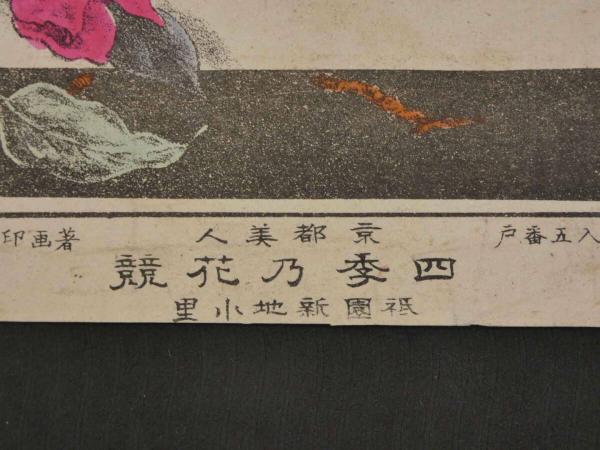 八五番戸
京都美人
四季乃花競
祇園新地小里
著画印